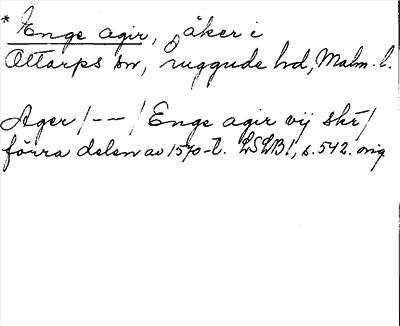 *Enge agir, åker i
Ottarps sn, Luggude hd, Malm. l.
Ager /--/ Enge agir vij skr/
förra delen av 1570-t. LSLB1, s. 542. orig